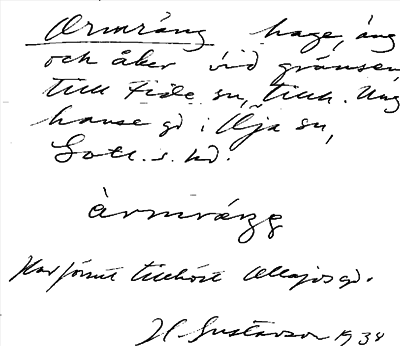 Armräng hage, äng
och åker vid gränsen
till Fide sn, tillh. Ung
hanse gd i Öja sn,
Gotl. s. hd.
àrmrázg
Har förut tillhört Ollajos gd.
H Gustavson 1938